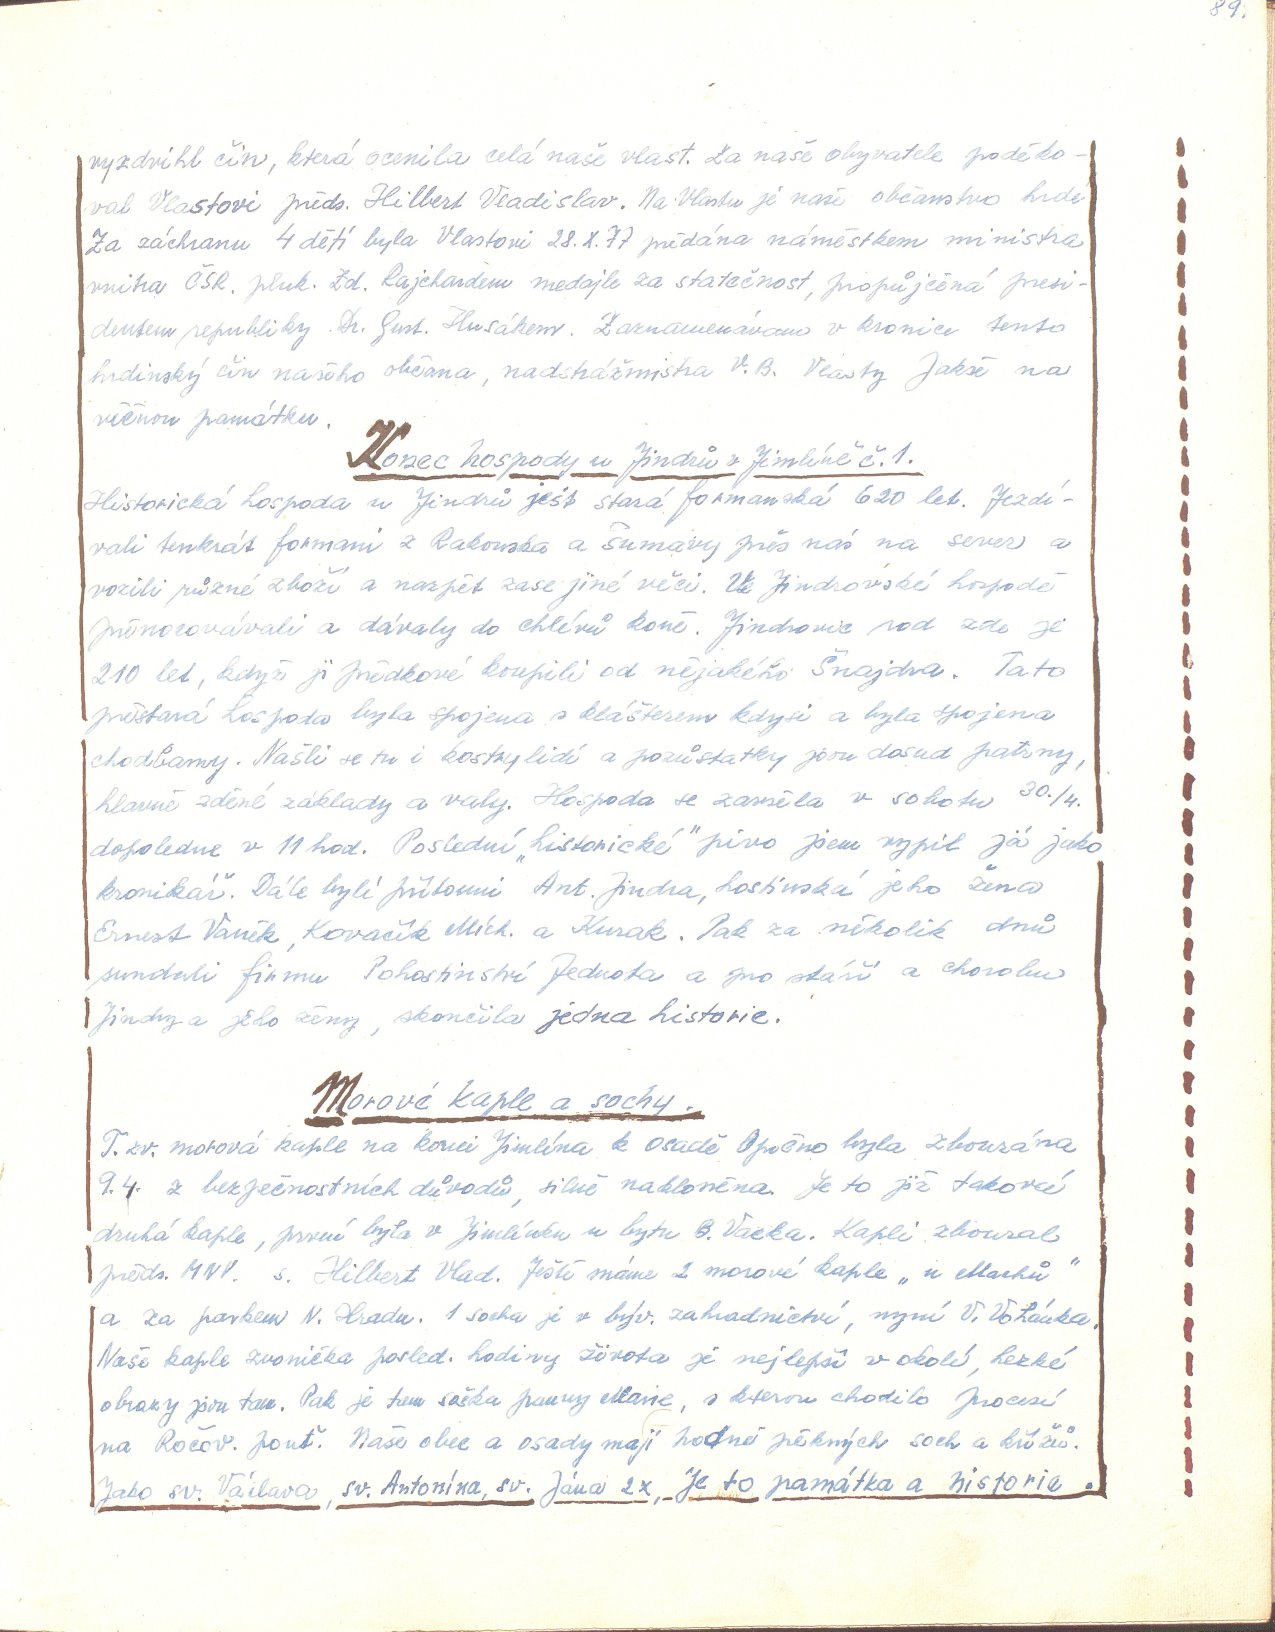 89.
vyzdvihl čin, která ocenila celá naše vlast. Za naše obyvatele poděko-
val Vlastovi předs. Hilbert Vladislav. Na Vlastu je naše občanstvo hrdé
Za záchranu 4 dětí byla Vlastovi 28.X.77 předána náměstkem ministra
vnitra ČSR. pluk. Zd. Rajchardem medajle za statečnost, propůjčená presi-
dentem republiky Dr. Gust. Husákem. Zaznamenávám v kronice tento
hrdinský čin našeho občana, nadstrážmistra V.B. Vlasty Jakše na
věčnou památku.
Konec hospody u Jindrů v Jimlíně č. 1.
Historická hospoda u Jindrů jest stará formanská 620 let. Jezdí-
vali tenkrát formani z Rakovska a Šumavy přes nás na sever a
vozili různé zboží a nazpět zase jiné věci. Ve Jindrovské hospodě
přenocovávali a dávaly do chlévů koně. Jindrovic rod zde je
210 let, když ji předkové koupili od nějakého Šnajdra. Tato
přestará hospoda byla spojena s klášterem kdysi a byla spojena
chodbamy. Našli se tu i kostry lidí a pozůstatky jsou dosud patrny,
hlavně zděné základy a valy. Hospoda se zavřela v sobotu 30./4.
dopoledne v 11 hod. Poslední „historické" pivo jsem vypil já jako
kronikář. Dále byli přítomni Ant. Jindra, hostinská jeho žena
Ernest Vaněk, Kovačík Mich. a Kurak. Pak za několik dnů
sundali firmu Pohostinství Jednota a pro stáří a chorobu
Jindry a jeho ženy, skončila jedna historie.
Morové kaple a sochy.
T.zv. morová kaple na konci Jimlína k osadě Opočno byla zbourána
9.4. z bezpečnostních důvodů, silně nakloněna. Je to již taková
druhá kaple, první byla v Jimlínku u bytu B. Vacka. Kapli zboural
předs. MNV. s. Hilbert Vlad. Ještě máme 2 morové kaple „u Machů"
a za parkem N. Hradu. 1 socha je v býv. zahradnictví, nyní V. Vohánka.
Naše kaple zvonička posled. hodiny života je nejlepší v okolí, hezké
obrazy jsou tam. Pak je tam soška panny Marie, s kterou chodilo procesí
na Ročov. pouť. Naše obec a osady mají hodně pěkných soch a křížů.
Jako sv. Václava, sv. Antonína, sv. Jána 2x, Je to památka a historie.